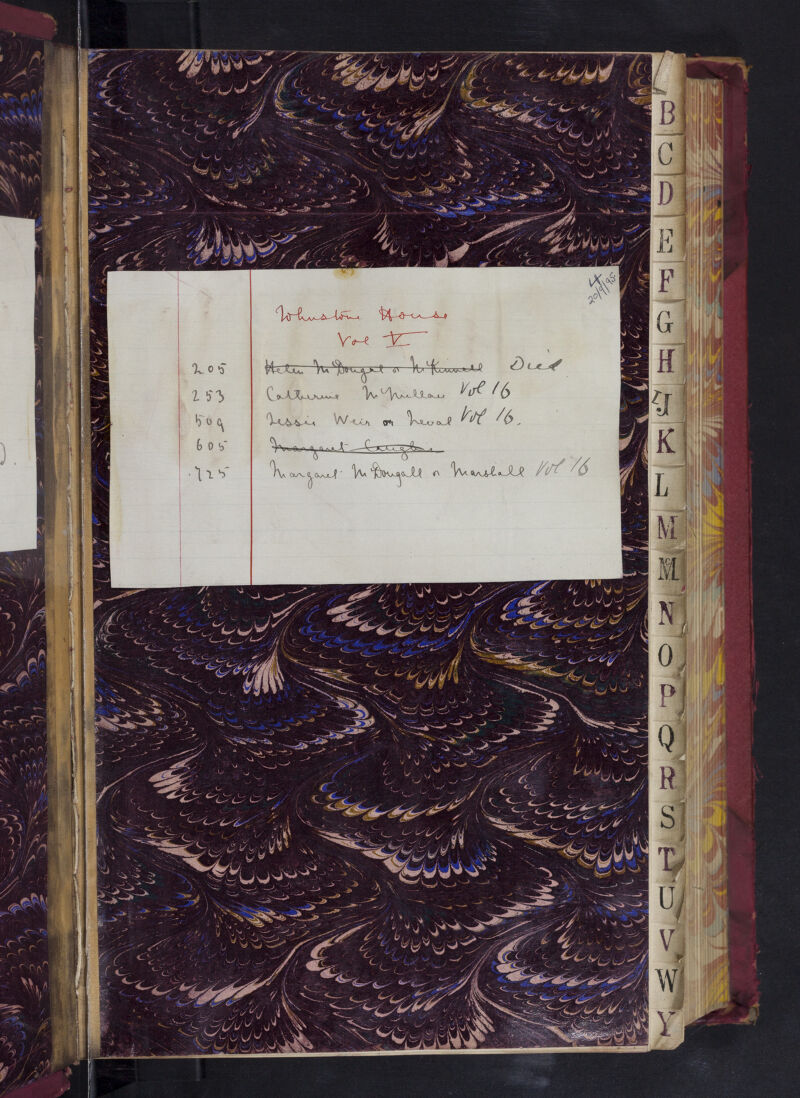 4
20/9/95
Johnstone House
Vol V
205 Helen McDougal or McKinnell Died
253 Catherine McMillan Vol 16
509 Jessie Weir or Vol 16.
605 Margaret
725 Margaret McDougall or Marshall Vol 16
B
C
D
E
F
G
H
IJ
K
L
M
Mc
N
O
P
Q
R
S
T
U
V
W
Y